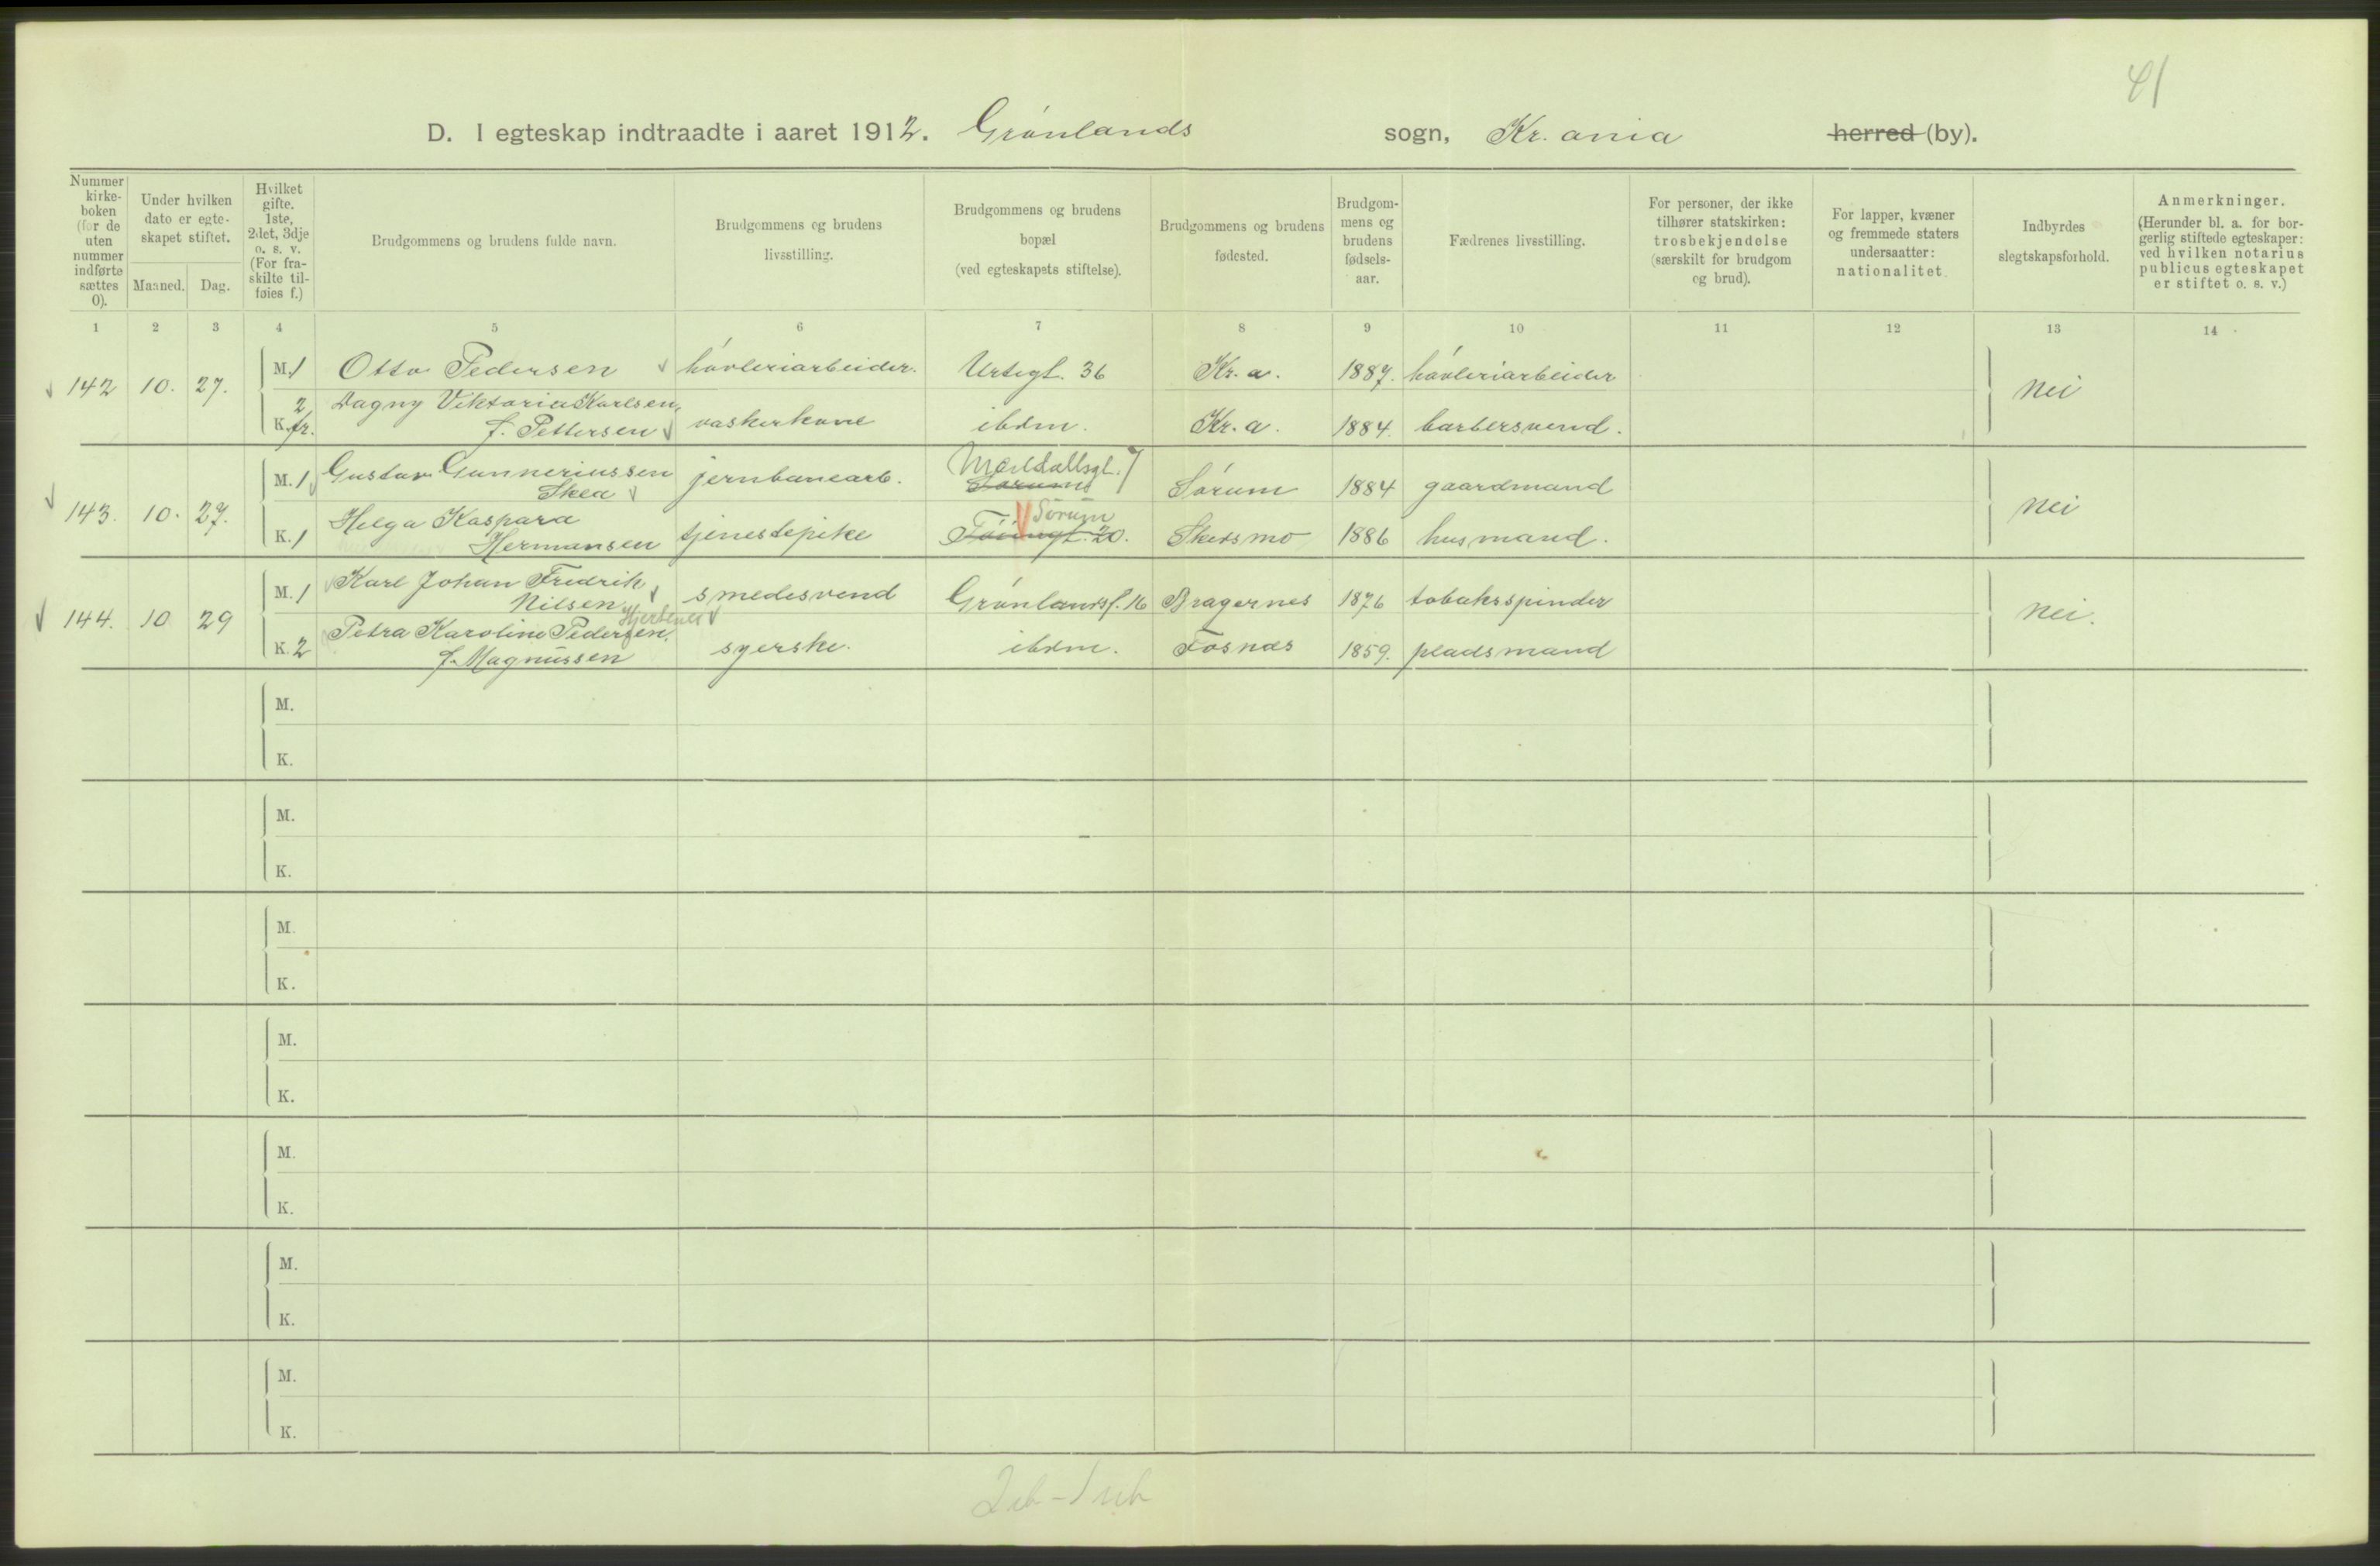 41
D. I egteskap indtraadte i aaret 1912. Grønlands sogn, Kr.ania herred (by).
Nummer kirke-boken (for de uten nummer indførte sættes 0).
Under hvilken dato er egte-skapet stiftet.
Maaned. Dag.
Hvilket gifte. 1ste, 2det, 3dje o. s. v. (For fra-skilte til-føies f.)
Brudgommens og brudens fulde navn.
Brudgommens og brudens livsstilling.
Brudgommens og brudens bopæl (ved egteskapets stiftelse).
Brudgommens og brudens fødested.
Brudgom-mens og brudens fødsels-aar.
Fædrenes livsstilling.
For personer, der ikke tilhører statskirken: trosbekjendelse (særskilt for brudgom og brud).
For lapper, kvæner og fremmede staters undersaatter: nationalitet
Indbyrdes slegtskapsforhold.
Anmerkninger. (Herunder bl. a. for bor-gerlig stiftede egteskaper: ved hvilken notarius publicus egteskapet er stiftet o. s. v.)
1 2 3 4 5 6 7 8 9 10 11 12 13 14
142 10. 27. M. 1 Otto Pedersen høvleriarbeider. Urtegt. 36 Kr.a. 1887. høvleriarbeider nei
K. 2 fr. Dagny Viktoria Karlsen, f. Pettersen vaskerkone ibdm. Kr.a. 1884. barbersvend.
143. 10. 27. M. 1 Gustav Gunneriussen Skea jernbanearb. Sørum 1884 gaardmand nei
K. 1 Helga Kaspara Hermansen tjenestepike Sørum Tøiengt. 20. Skedsmo 1886 husmand.
144. 10 29 M. 1 Karl Johan Fredrik Nilsen smedesvend Grønlandsl. 16 Bragernes 1876 tobaksspinder nei.
K. 2 Petra Karoline Pedersen, f. Magnussen syerske. ibdm. Fosnæs 1859. pladsmand
M.
K.
M.
K.
M.
K.
M.
K.
M.
K.
M.
K.
M.
K.